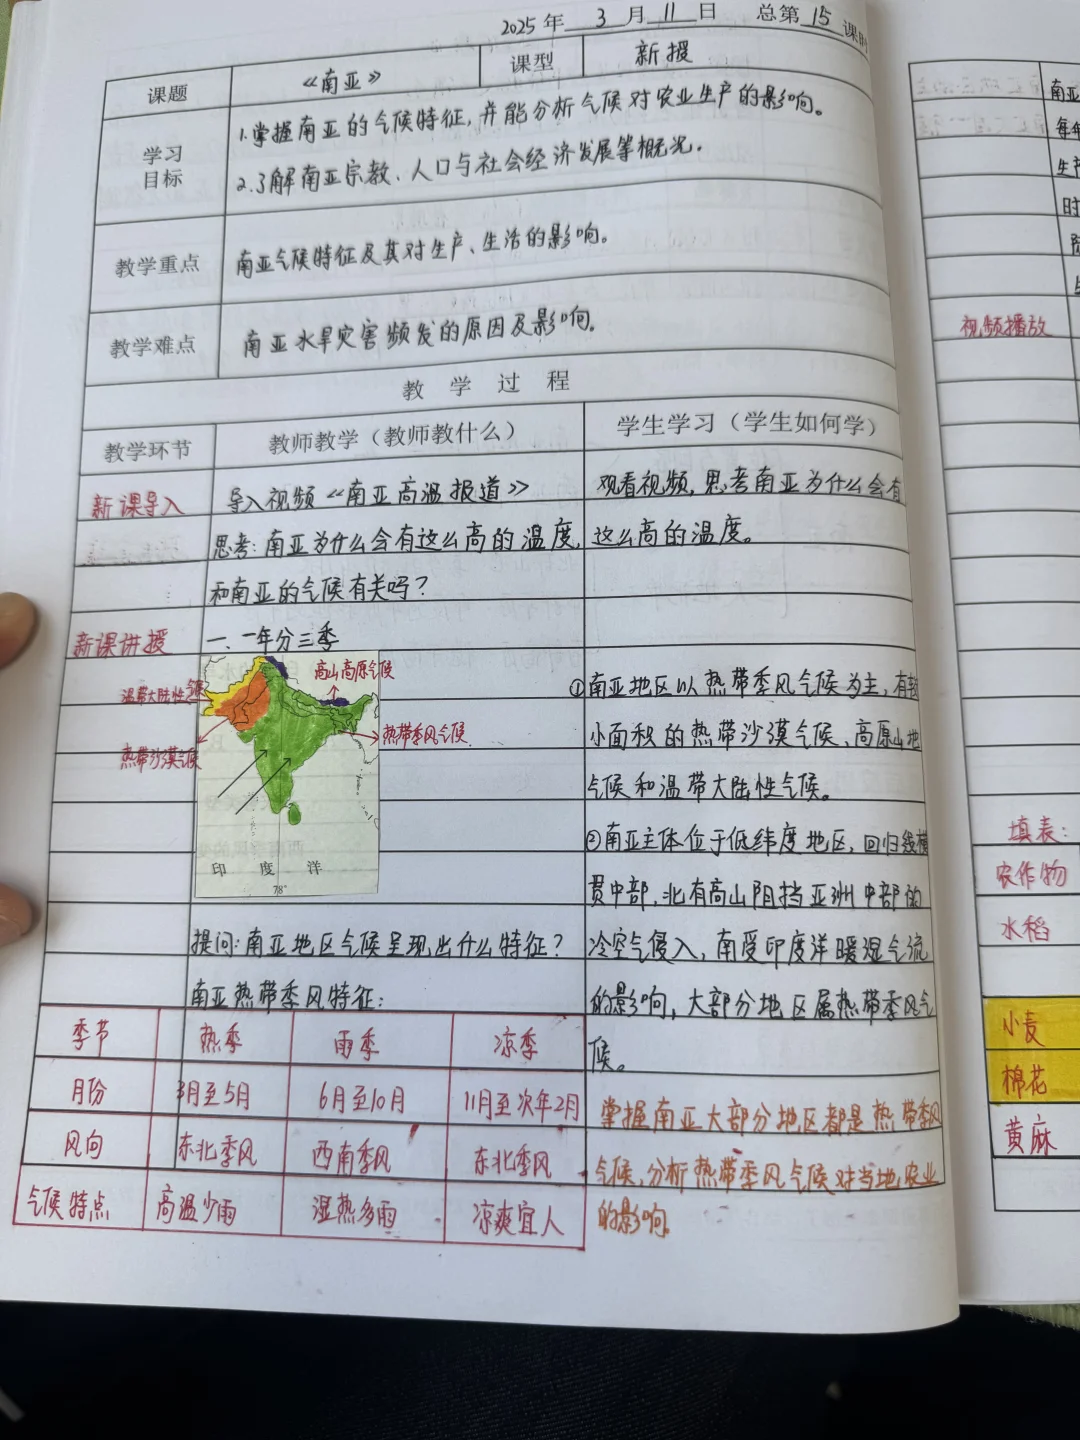 2025年 3 月 11 日 总第 15 课时
课题 《南亚》 课型 新授
学习目标
1.掌握南亚的气候特征,并能分析气候对农业生产的影响。
2.了解南亚宗教、人口与社会经济发展等概况。
教学重点 南亚气候特征及其对生产、生活的影响。
教学难点 南亚水旱灾害频发的原因及影响。
教 学 过 程
教学环节 教师教学（教师教什么） 学生学习（学生如何学）
新课导入 导入视频《南亚高温报道》
思考:南亚为什么会有这么高的温度,
和南亚的气候有关吗?
观看视频,思考南亚为什么会有
这么高的温度。
新课讲授 一、一年分三季
高山高原气候
温带大陆性气候
热带季风气候
热带沙漠气候
印 度 洋
78°
提问:南亚地区气候呈现出什么特征?
南亚热带季风特征:
①南亚地区以热带季风气候为主,有较
小面积的热带沙漠气候、高原山地
气候和温带大陆性气候。
②南亚主体位于低纬度地区,回归线横
贯中部,北有高山阻挡亚洲中部的
冷空气侵入,南受印度洋暖湿气流
的影响,大部分地区属热带季风气
候。
季节 热季 雨季 凉季
月份 3月至5月 6月至10月 11月至次年2月
风向 东北季风 西南季风 东北季风
气候特点 高温少雨 湿热多雨 凉爽宜人
掌握南亚大部分地区都是热带季风
气候,分析热带季风气候对当地农业
的影响。
南亚
每年
生产
时
视频播放
填表:
农作物
水稻
小麦
棉花
黄麻